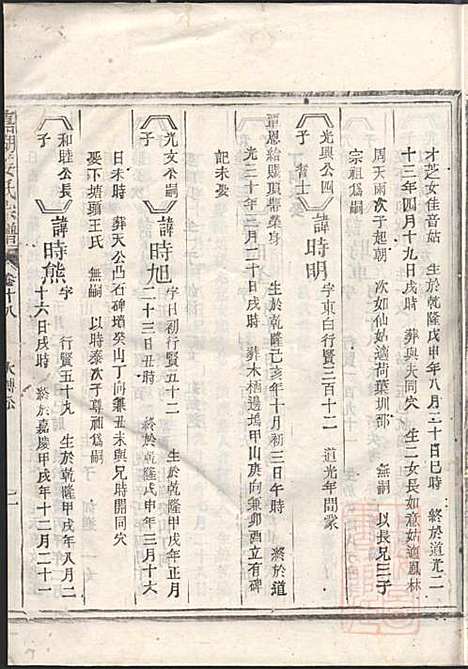 才芝女佳音姑 生於乾隆戊申年八月三十日巳時 終於道光二
十三年四月十九日戌時 葬與夫同穴 生二女長如薏姑適鳳林
周天雨次子起朝 次如仙姑適荷葉圳鄒 無嗣 以長兄三子
宗祖爲嗣
光興公四子耆士
諱時明
字東白行賢三百十二 道光年間蒙
覃恩給賜頂帶榮身 生於乾隆己亥年十月初三日午時 終於道
光二十年三月二十日戌時 葬木梗邊塢甲山庚向兼卯酉立有碑
記未娶
光文公嗣子
諱時旭
字日初行賢五十二 生於乾隆甲戌年正月
二十三日丑時 終於乾隆戊申年三月十六
日未時 葬天公凸石碑塝癸山丁向兼丑未與兄時開同穴
娶下塘頭王氏 無嗣 以時泰次子尊祖爲嗣
和睦公長子
諱時熊
字 行賢五十九 生於乾隆甲戌年八月二
十六日戌時 終於嘉慶甲戌年十二月二十一
氏宗譜
卷十八